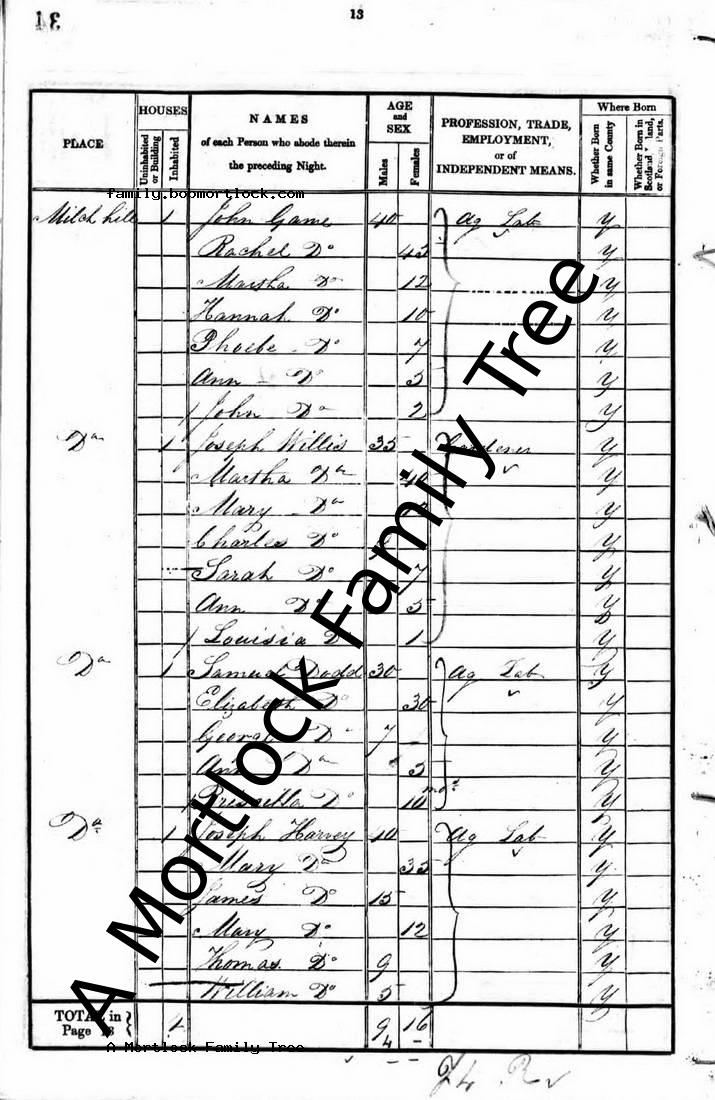 13
13
PLACE
HOUSES
Uninhabited or Building
Inhabited
NAMES
of each Person who abode therein
the preceding Night.
AGE
and
SEX
Males
Females
PROFESSION, TRADE,
EMPLOYMENT,
or of
INDEPENDENT MEANS.
Where Born
Whether Born
in same County
Whether Born in
or Foreign Parts.
family.boomortlock.com
1 John Game 40 Ag Lab Y
Rachel Do Y
Martha Do 12 Y
Hannah Do 10 Y
Phoebe Do 7 Y
Ann Do Y
John Do 2 Y
Do 1 Joseph Willis 35 Y
Martha Do Y
Mary Do Y
Charles Do Y
Sarah Do 7 Y
Ann Do 5 Y
Louisia D 1 Y
Do 1 Samuel Dodd 30 Ag Lab Y
Elizabeth Do 30 Y
George D 7 Y
Ann Do Y
Prissilla Do 10 mos Y
Do 1 Joseph Harvey 40 Ag Lab Y
Mary Do Y
James Do 15 Y
Mary Do 12 Y
Thomas Do 9 Y
William Do 5 Y
TOTAL in
Page 13
4 9 16
A Mortlock Family Tree
A Mortlock Family Tree